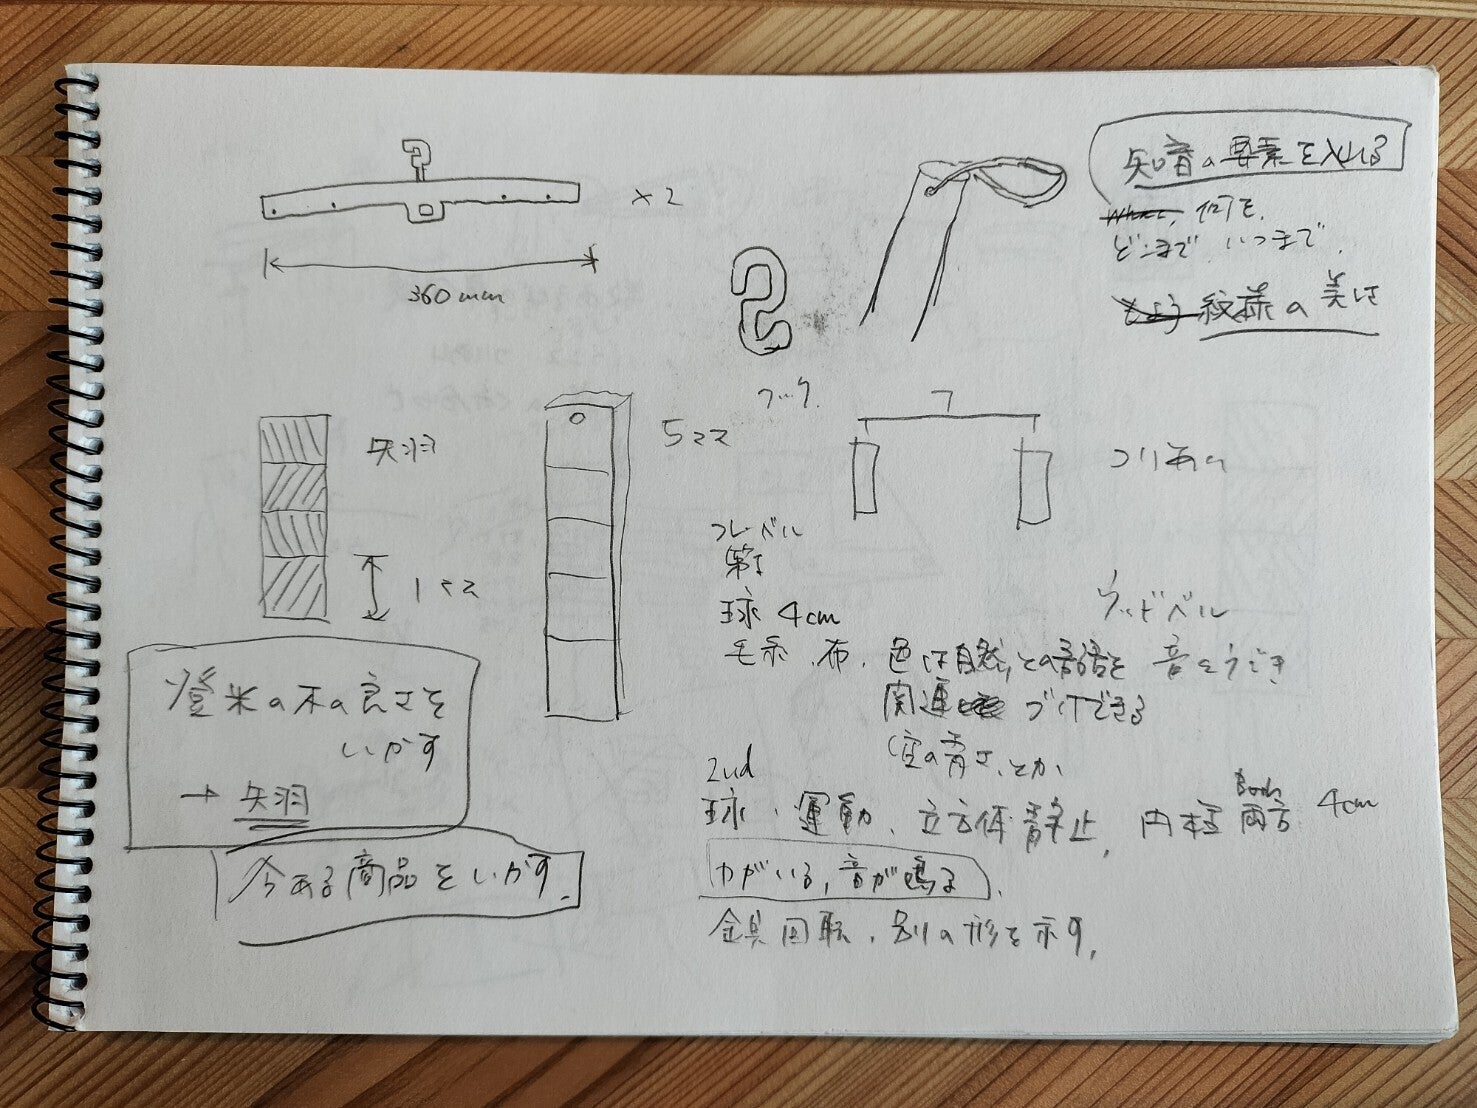 ×2
360mm
知育の要素を入れる
何を、
どこまで いつまで
紋様の美は
フック
矢羽
1マス
5マス
つりあい
フレーベル
第1
球 4cm
毛糸、布、色は自然との調和を
関連づけできる
(空の青さ、とか、
ウッドベル
音とうごき
登米の木の良さを
いかす
→ 矢羽
今ある商品をいかす
2nd
球・運動、立方体静止、円柱両方 4cm
Both
わがいる、音が鳴る
金具回転、別の形を示す。